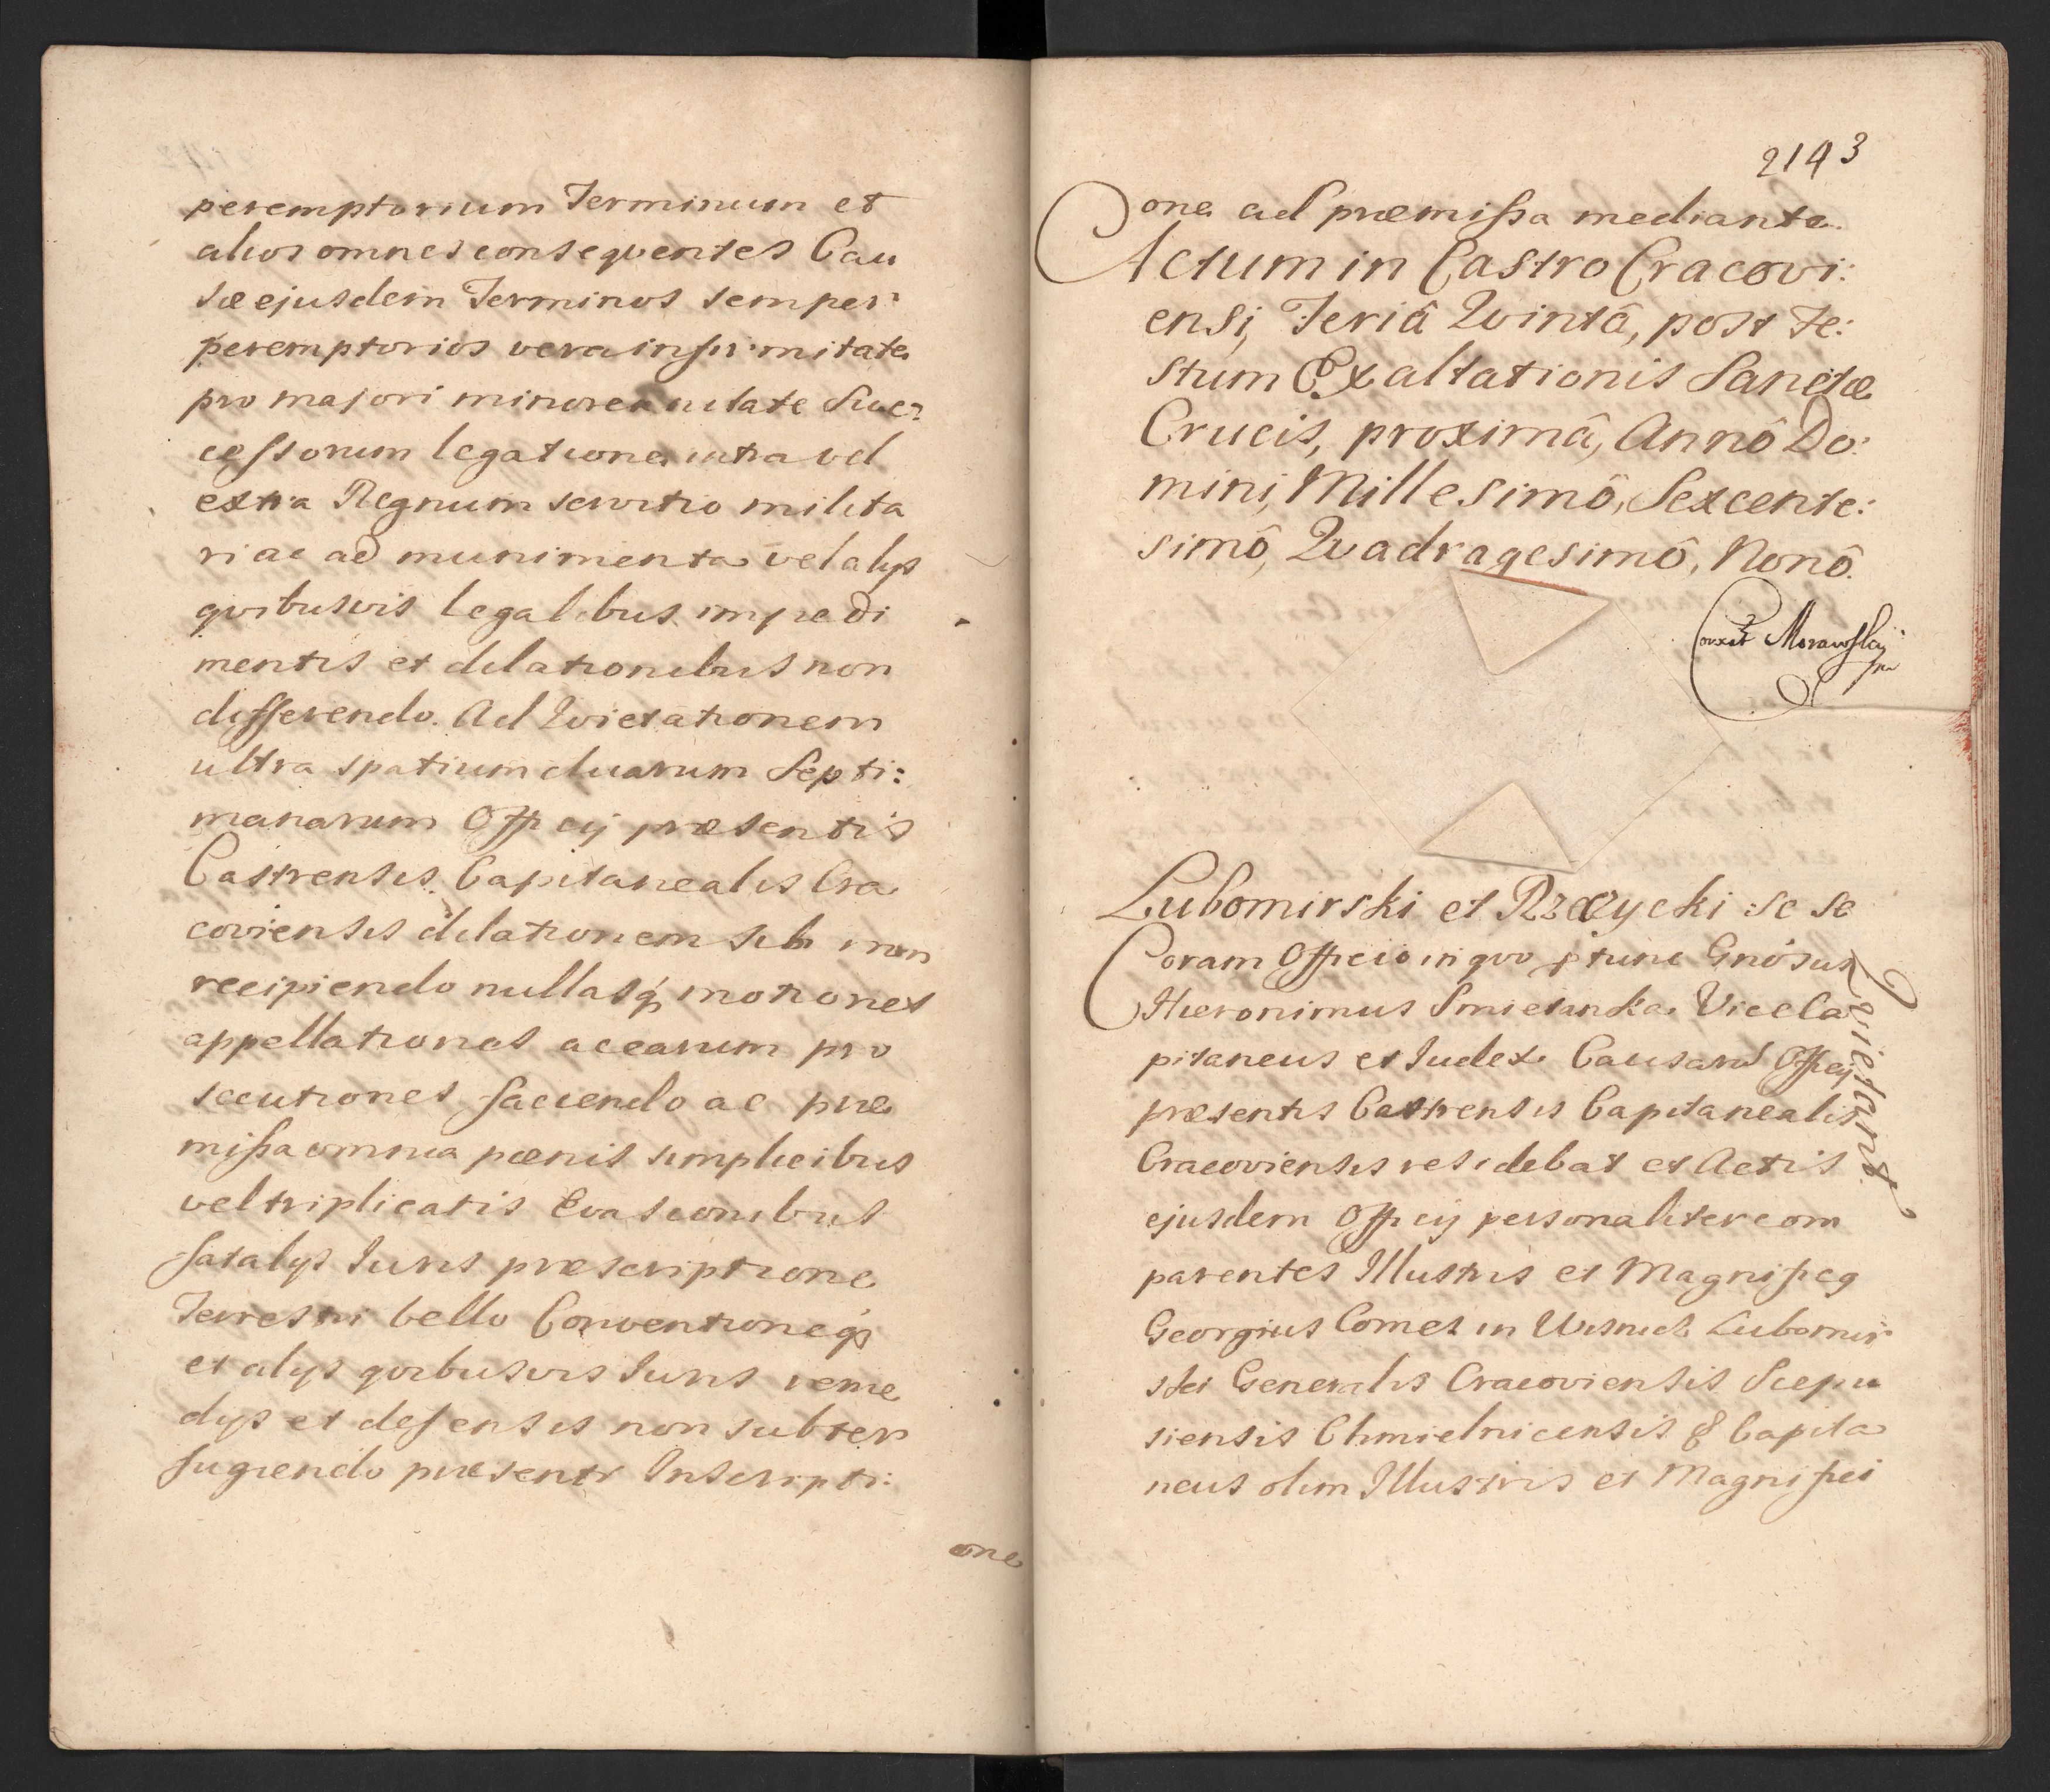 peremptorium Terminum et
alios omnes conseqventes Cau
sæ ejusdem Terminos semper
peremptorios vera infirmitate
pro majori minore ætate Suc-
cessorum legatione intra vel
extra Regnum servitio milita
ri ac ad munimenta vel alys
qvibusvis legalibus impedi
mentis et dilationibus non
differendo. Ad Qvietationem
ultra spatium duarum Septi:
manarum Officij præsentis
Castrensis Capitanealis Cra
coviensis dilationem sibi non
recipiendo nullasq motiones
appellationes ac earum pro
secutiones faciendo ac præ
missa omnia pœnis simplicibus
vel triplicatis Evasionibus
fatalys Juris præscriptione
Terrestri bello Conventioneq
et alys qvibusvis Juris reme
dys et defensis non subter
fugiendo præsenti Inscripti:
one
2193
one ad præmissa mediante.
Actum in Castro Cracovi:
ensi, Feriâ Qvintâ, post Fe:
stum Exaltationis Sanctæ
Crucis, proximâ, Annô Do:
mini, Millesimô, Sexcente:
simô, Qvadragesimô, Nonô.
Correxit Morawski
mp
Lubomirski et Rzeczycki se se
Qvietant
Coram Officio in qvo ptunc Gnosus
Hieronimus Smietanka Viceca
pitaneus et Judex Causarum Officij
præsentis Castrensis Capitanealis
Cracoviensis residebat et Actis
ejusdem Officij personaliter com
parentes Illustris et Magnificq
Georgius Comes in Wisnicz Lubomir
ski Generalis Cracoviensis Scepu
siensis Chmielnicensis & Capita
neus olim Illustris et Magnifici